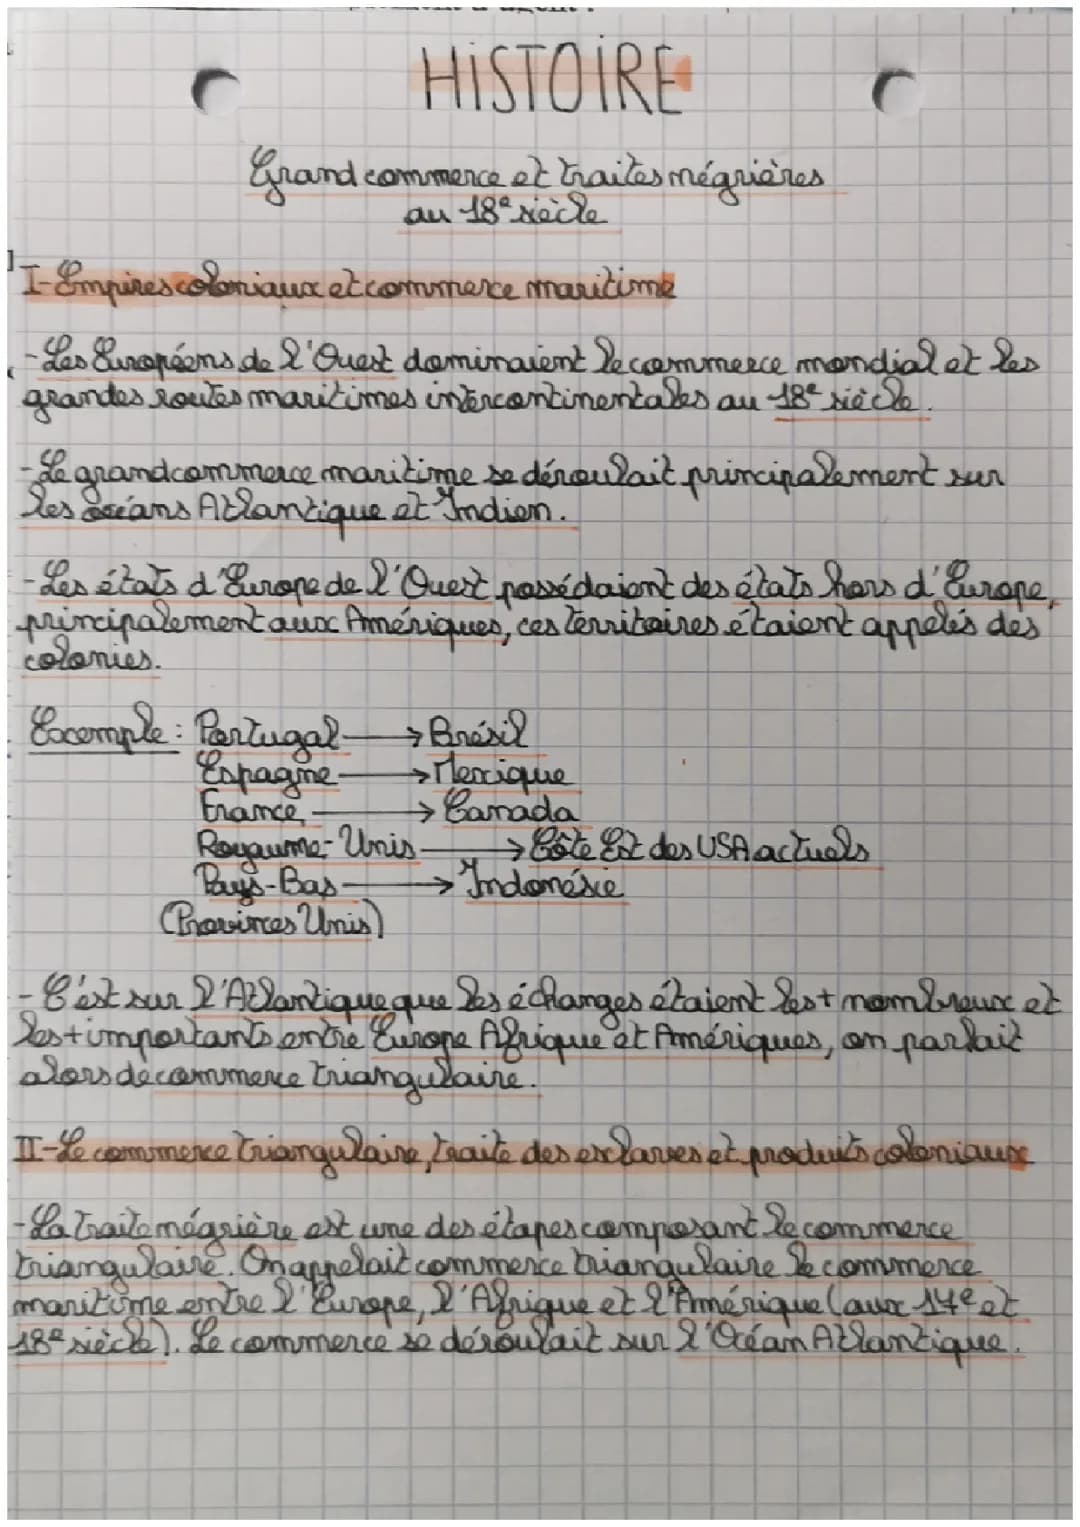 HISTOIRE
Grand commerce et traites négrières
au 18e siècle
I-Empires coloniaux et commerce maritime
-Les Européens de l'Ouest dominaient le commerce mondial et les
grandes routes maritimes intercontinentales au 18e siècle.
-Le grand commerce maritime se déroulait principalement sur
les océans Atlantique et Indien.
-Les états d'Europe de l'Ouest possédaient des états hors d'Europe,
principalement aux Amériques, ces territoires étaient appelés des
colonies.
Exemple: Portugal → Brésil
Espagne → Mexique
France → Canada
Royaume-Unis → Côte Est des USA actuels
Pays-Bas → Indonésie
(Provinces Unis)
-C'est sur l'Atlantique que les échanges étaient les + nombreux et
les + importants entre Europe Afrique et Amériques, on parlait
alors de commerce triangulaire.
II-Le commerce triangulaire, traite des esclaves et produits coloniaux
-La traite négrière est une des étapes composant le commerce
triangulaire. On appelait commerce triangulaire le commerce
maritime entre l'Europe, l'Afrique et l'Amérique (aux 17e et
18e siècle). Le commerce se déroulait sur l'Océan Atlantique.